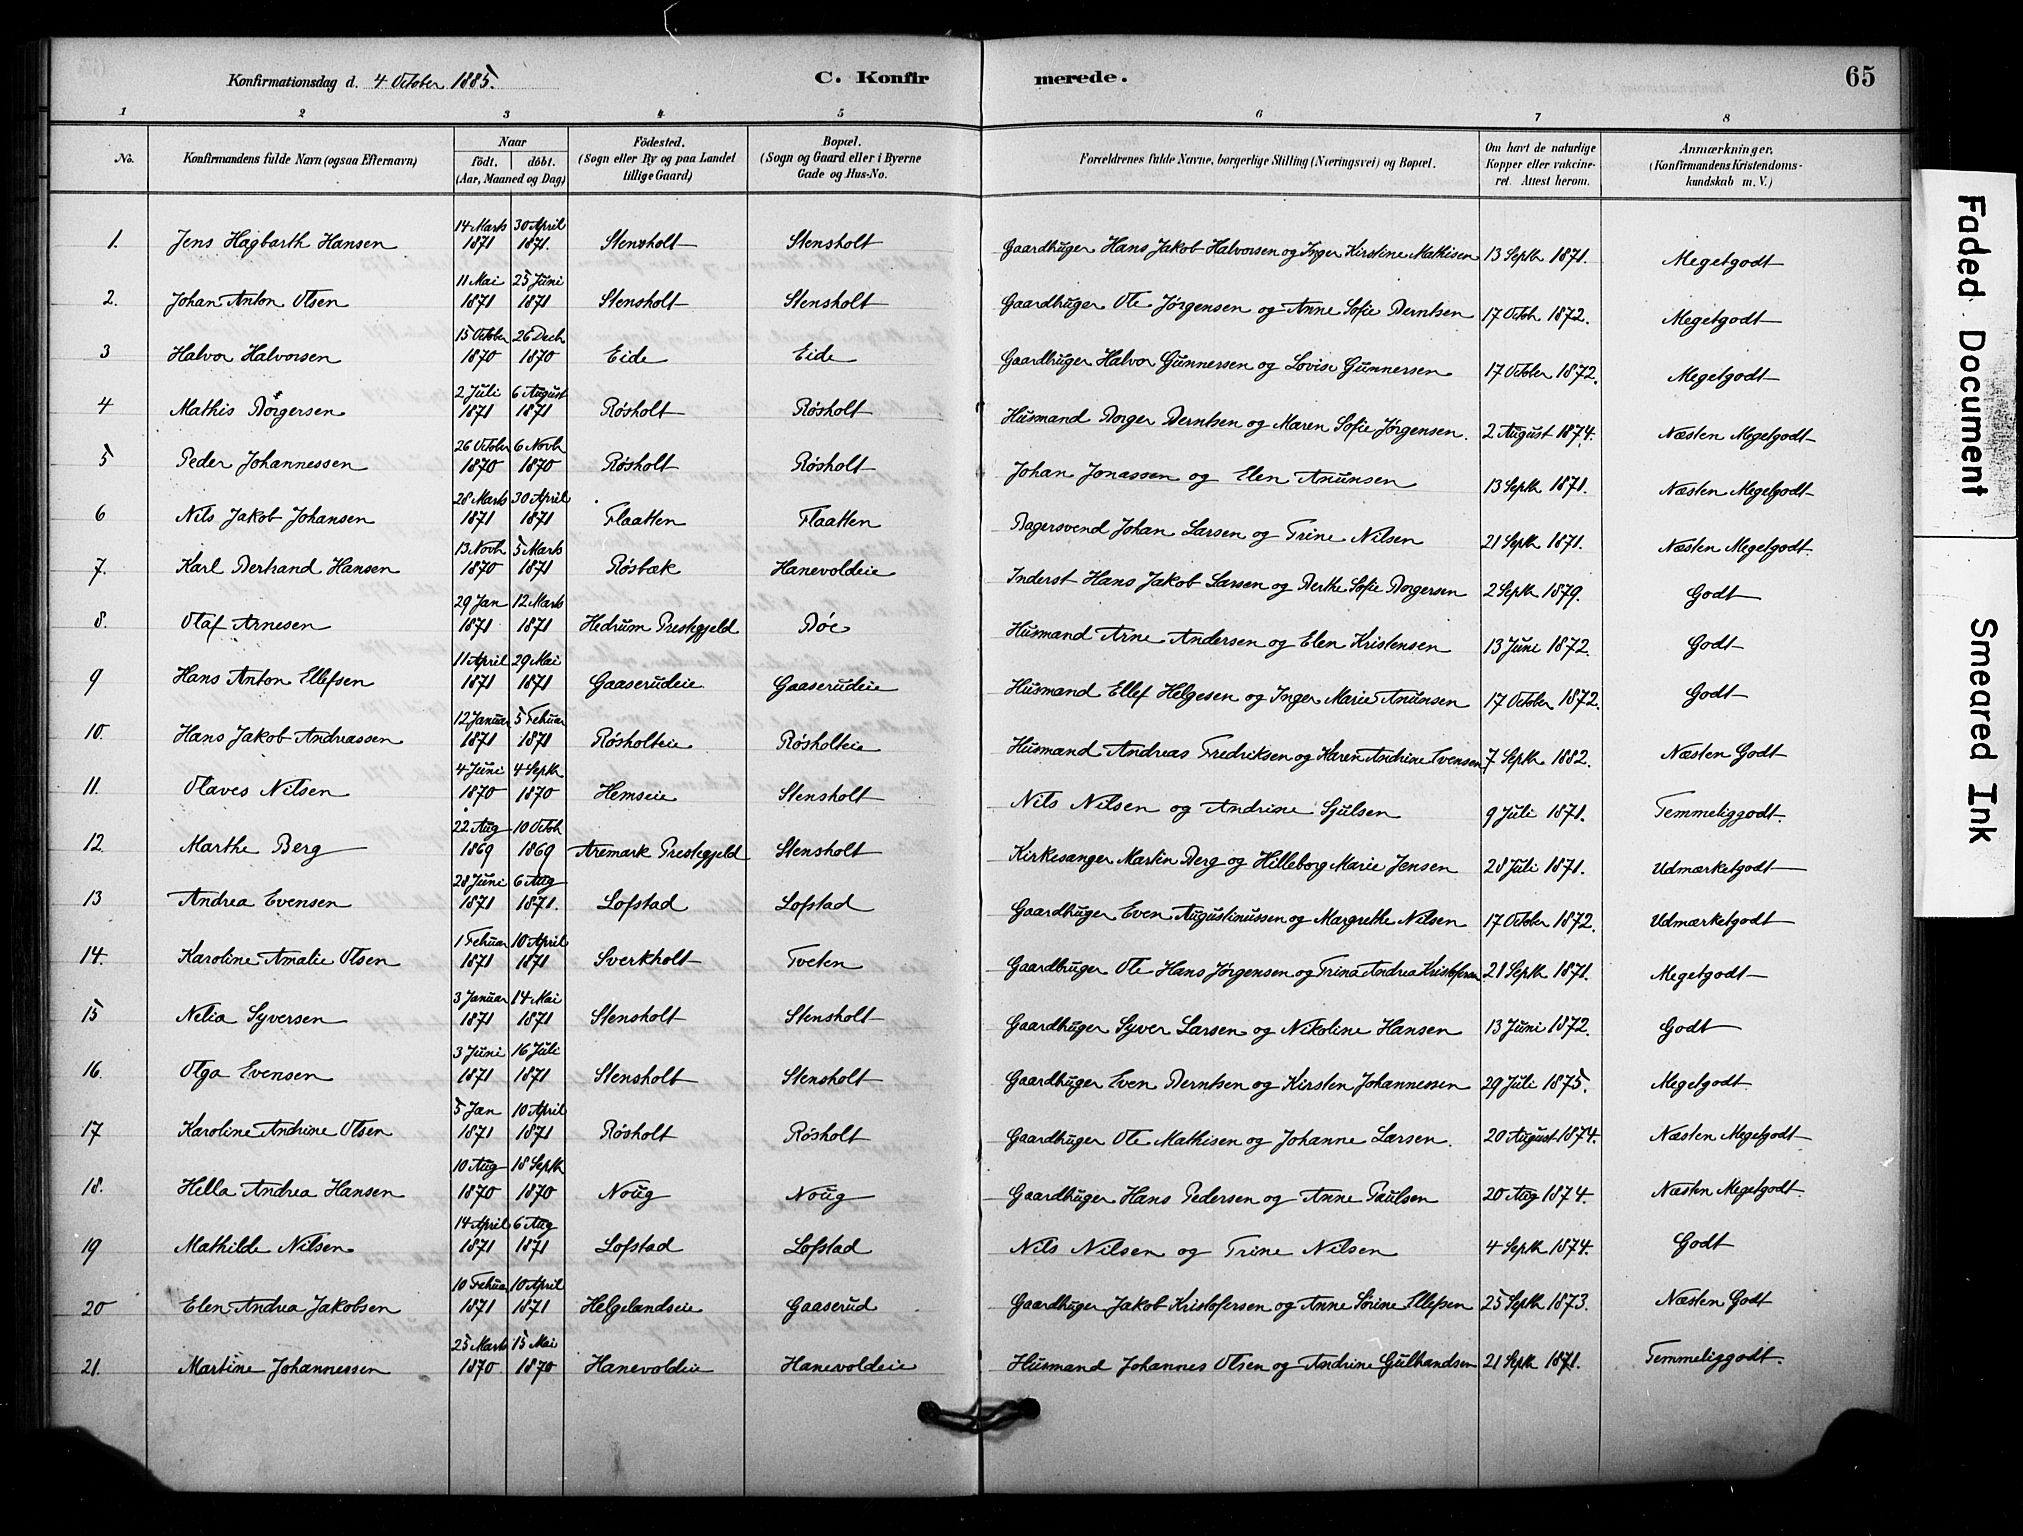 Konfirmationsdag d. 4 October 1885. C. Konfirmerede. 65
1 2 3 4 5 6 7 8
No. Konfirmandens fulde Navn (ogsaa Efternavn) Naar födt. döbt. (Aar, Maaned og Dag) Födested. (Sogn eller By og paa Landet tillige Gaard) Bopæl. (Sogn og Gaard eller i Byerne Gade og Hus-No. Forældrenes fulde Navne, borgerlige Stilling (Næringsvei) og Bopæl. Om havt de naturlige Kopper eller vakcineret. Attest herom. Anmærkninger, (Konfirmandens Kristendomskundskab m. V.)
1. Jens Hagbarth Hansen 14 Marts 1871 30 April 1871. Stensholt Stensholt Gaardbruger Hans Jakob Halvorsen og Inger Kirstine Mathisen 13 Septb 1871. Megetgodt
2. Johan Anton Olsen 11 Mai 1871 25 Juni 1871 Stensholt Stensholt Gaardbruger Ole Jørgensen og Anne Sofie Berntsen 17 Octob 1872. Megetgodt
3 Halvor Halvorsen 15 October 1870 26 Decb 1870 Eide Eide Gaardbruger Halvor Gunnersen og Lovise Gunnersen 17 October 1872. Megetgodt
4 Mathis Borgersen 2 Juli 1871 6 August 1871 Røsholt Røsholt Husmand Borger Berntsen og Maren Sofie Jørgensen. 2 August 1874. Næsten Megetgodt
5 Peder Johannessen 26 October 1870 6 Novb 1870 Røsholt Røsholt Johan Jonassen og Elen Anunsen 13 Septb 1871. Næsten Megetgodt
6 Nils Jakob Johansen 28 Marts 1871 30 April 1871 Flaatten Flaatten Bagersvend Johan Larsen og Trine Nilsen 21 Septb 1871. Næsten Megetgodt
7. Karl Bertrand Hansen 13 Novb 1870 5 Marts 1871 Røsbæk Hanevoldeie Inderst Hans Jakob Larsen og Berthe Sofie Borgersen 2 Septb 1879. Godt
8. Olaf Arnesen 29 Jan 1871 12 Marts 1871 Hedrum Prestegjeld Bøe Husmand Arne Andersen og Elen Kristensen 13 Juni 1872. Godt
9 Hans Anton Ellefsen 11 April 1871 29 Mai 1871 Gaaserudeie Gaaserudeie Husmand Ellef Helgesen og Inger Marie Anunsen 17 October 1872. Godt
10. Hans Jakob Andreassen 12 Januar 1871 5 Febuar 1871 Røsholteie Røsholteie Husmand Andreas Fredriksen og Karen Andrine Evensen 7 Septb 1882. Næsten Godt
11. Olaves Nilsen 4 Juni 1870 4 Septb 1870 Hemseie Stensholt Nils Nilsen og Andrine Sjulsen 9 Juli 1871. Temmeliggodt.
12 Marthe Berg 22 Aug 1869 10 Octob 1869 Aremark Prestegjeld Stensholt Kirkesanger Martin Berg og Hilleborg Marie Jensen 28 Juli 1871. Udmærketgodt
13 Andrea Evensen 28 Juni 1871 6 Aug 1871. Lofstad Lofstad Gaardbruger Even Augustinussen og Margrethe Nilsen 17 October 1872. Udmærketgodt
14. Karoline Amalie Olsen 1 Febuar 1871 10 April 1871 Sverkholt Tveten Gaardbruger Ole Hans Jørgensen og Trina Andrea Kristofersen 21 Septb 1871. Megetgodt
15 Nelia Syversen 3 Januar 1871 14 Mai 1871 Stensholt Stensholt Gaardbruger Syver Larsen og Nikoline Hansen 13 Juni 1872. Godt
16. Olga Evensen 3 Juni 1871 16 Juli 1871 Stensholt Stensholt Gaardbruger Even Berntsen og Kirsten Johannessen 29 Juli 1875. Megetgodt
17 Karoline Andrine Olsen 5 Jan 1871 10 April 1871 Røsholt Røsholt Gaardbruger Ole Mathisen og Johanne Larsen. 20 August 1874. Næsten Megetgodt
18. Hella Andrea Hansen 10 Aug 1870 18 Septb 1870 Noug Noug Gaardbruger Hans Pedersen og Anne Paulsen 20 Aug 1874. Næsten Megetgodt
19 Mathilde Nilsen 14 April 1871 6 Aug 1871 Lofstad Lofstad Nils Nilsen og Trine Nilsen 4 Septb 1874. Godt
20 Elen Andrea Jakobsen 10 Febuar 1871 10 April 1871 Helgelandseie Gaaserud Gaardbruger Jakob Kristofersen og Anne Sørine Ellefsen 25 Septb 1873. Næsten Godt
21. Martine Johannessen 25 Marts 1870 15 Mai 1870 Hanevoldeie Hanevoldeie Husmand Johannes Olsen og Andrine Gulbrandsen 21 Septb 1871. Temmeliggodt.
Faded Document
Smeared Ink